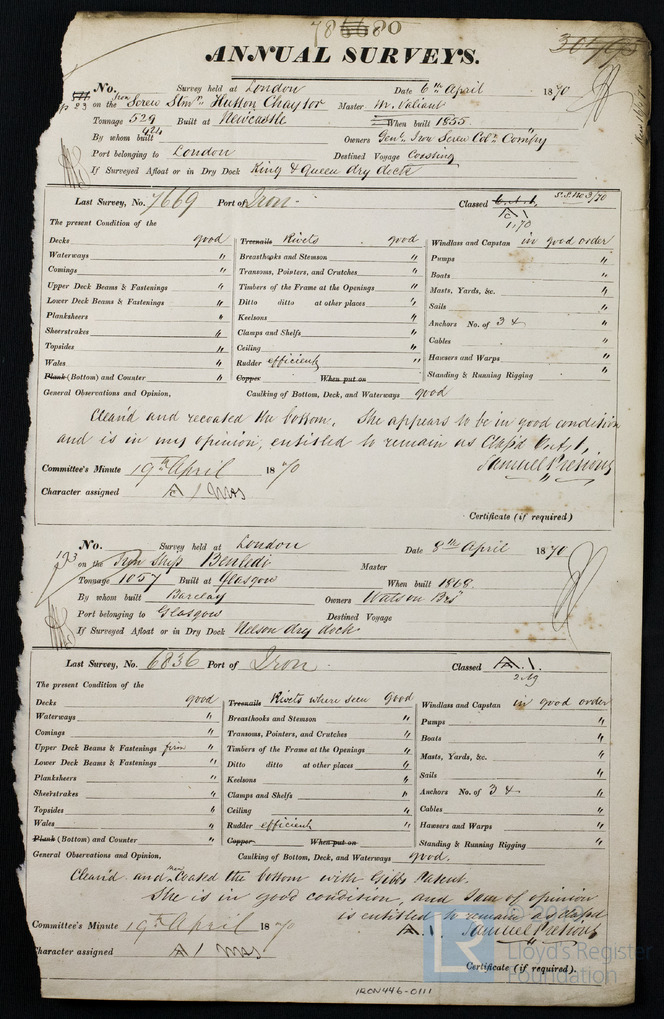 ANNUAL SURVEYS.
No. Survey held at London Date 6th April 1870
on the Iron Screw Stmr Hutton Chaytor Master M. Valiant
Tonnage 529 Built at Newcastle When built 1855
424
By whom built Owners Genl. Iron Screw Colr. Compy
Port belonging to London Destined Voyage Coasting
If Surveyed Afloat or in Dry Dock King & Queen dry dock
Last Survey, No. 7669 Port of Iron Classed
A 1
1.70
The present Condition of the
Decks good Treenails Rivets good Windlass and Capstan in good order
Waterways " Breasthooks and Stemson " Pumps "
Comings " Transoms, Pointers, and Crutches " Boats "
Upper Deck Beams & Fastenings " Timbers of the Frame at the Openings " Masts, Yards, &c. "
Lower Deck Beams & Fastenings " Ditto ditto at other places " Sails "
Planksheers " Keelsons " Anchors No. of 3 & "
Sheerstrakes " Clamps and Shelfs " Cables "
Topsides " Ceiling " Hawsers and Warps "
Wales " Rudder efficient " Standing & Running Rigging "
Plank (Bottom) and Counter " Copper When put on
General Observations and Opinion, Caulking of Bottom, Deck, and Waterways good
Clean'd and recoated the bottom. She appears to be in good condition
and is in my opinion, entitled to remain as Class'd
Committee's Minute 19th April 1870
Character assigned A 1
Certificate (if required)
No. Survey held at London Date 8th April 1870
on the Iron Ship Benledi Master
Tonnage 1057 Built at Glasgow When built 1868
By whom built Barclay Owners Watson Brs
Port belonging to Glasgow Destined Voyage
If Surveyed Afloat or in Dry Dock Nelson dry dock
Last Survey, No. 6836 Port of Iron Classed A.1.
The present Condition of the
Decks good Treenails Rivets where seen Good Windlass and Capstan in good order
Waterways " Breasthooks and Stemson " Pumps "
Comings " Transoms, Pointers, and Crutches " Boats "
Upper Deck Beams & Fastenings firm " Timbers of the Frame at the Openings " Masts, Yards, &c. "
Lower Deck Beams & Fastenings " Ditto ditto at other places " Sails "
Planksheers " Keelsons " Anchors No. of 3 & "
Sheerstrakes " Clamps and Shelfs " Cables "
Topsides " Ceiling " Hawsers and Warps "
Wales " Rudder efficient " Standing & Running Rigging "
Plank (Bottom) and Counter " Copper When put on
General Observations and Opinion, Caulking of Bottom, Deck, and Waterways good.
Clean'd and coated the bottom with Gibbs Patent.
She is in good condition, and I am of opinion
is entitled to remain as class'd
A.1.
Committee's Minute 19th April 1870
Character assigned A 1
Certificate (if required).
IRON446-0111
LR
© 2019
Lloyd's Register
Foundation